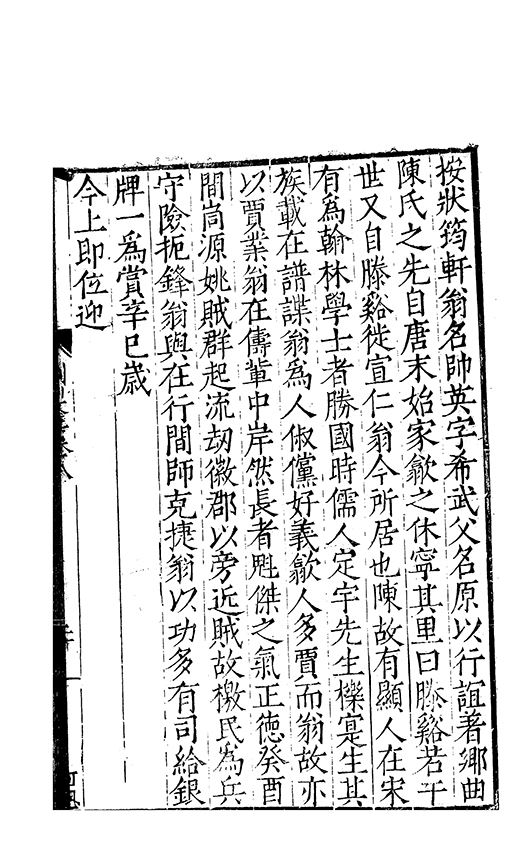 按狀筠軒翁名帥英字希武父名原以行誼著鄉曲
陳氏之先自唐末始家歙之休寧其里曰滕谿若干
世又自滕谿徙宣仁翁今所居也陳故有顯人在宋
有為翰林學士者勝國時儒人定宇先生櫟寔生其
族載在譜諜翁為人俶儻好義歙人多賈而翁故亦
以賈業翁在儔軰中岸然長者魁傑之氣正德癸酉
間峝源姚賊群起流刼徽郡以旁近賊故檄民為兵
守險扼鋒翁與在行間師克捷翁以功多有司給銀
牌一為賞辛巳歳
今上即位迎